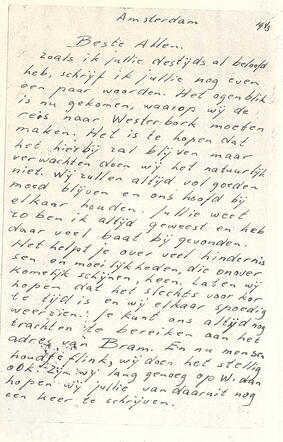 Amsterdam
Beste Allen.
zoals ik jullie destijds al beloofd
heb, schrijf ik jullie nog even
een paar woorden. Het ogenblik
is nu gekomen, waarop wij de
reis naar Westerbork moeten
maken. Het is te hopen dat
het hierbij zal blijven maar
verwachten doen wij het natuurlijk
niet. Wij zullen altijd vol goeden
moed blijven en ons hoofd bij
elkaar houden. Jullie weet
zo ben ik altijd geweest en heb
daar veel baat bij gevonden.
Het helpt je over veel hindernis
sen en moeilijkheden, die onover
komelijk schijnen, heen. Laten wij
hopen dat het slechts voor kor
te tijd is en wij elkaar spoedig
weerzien. Je kunt ons altijd nog
trachten te bereiken aan het
adres van Bram. En nu mensen
houdt je flink, wij doen het stellig
ook. Zijn wij lang genoeg op W. dan
hopen wij jullie van daaruit nog
een keer te schrijven.